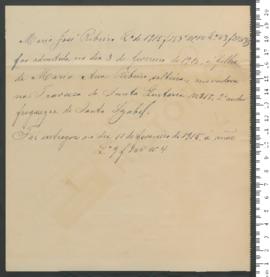 Maria José Ribeiro Nº de 1915
foi admitida no dia 3 de fevereiro de 1915. É filha
de Maria Ana Ribeiro, solteira, moradora
na Travessa de Santa Quiteria nº 217, 2º andar
freguezia de Santa Izabel.
Foi entregue no dia 11 de fevereiro de 1915, a mãe